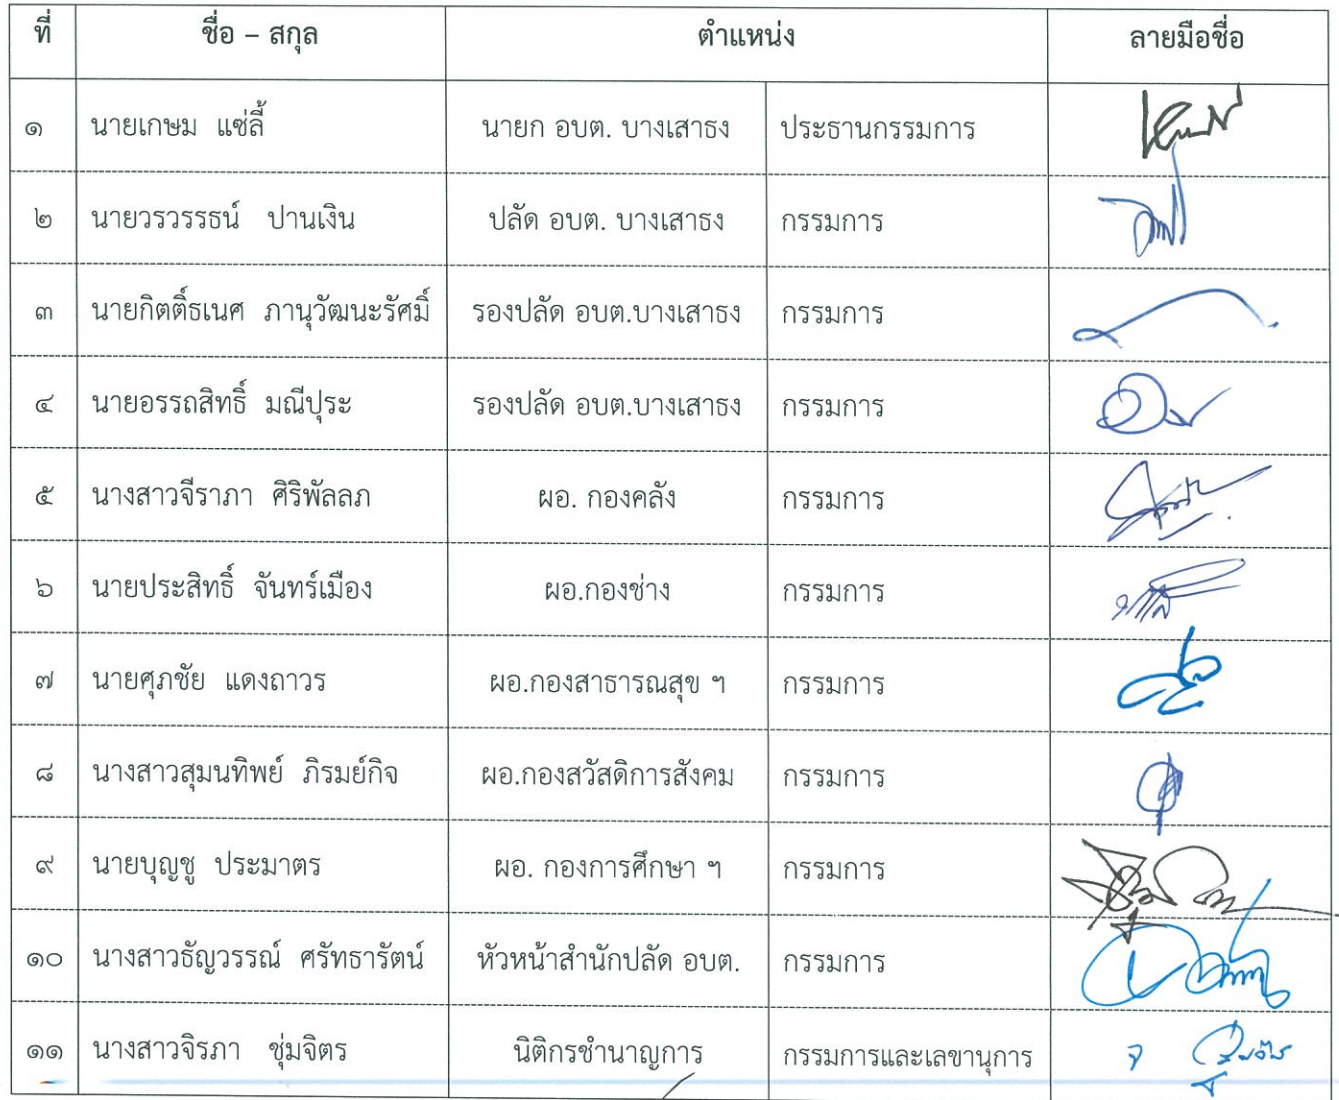 ที่ ชื่อ – สกุล ตำแหน่ง ลายมือชื่อ
๑ นายเกษม แซ่ลี้ นายก อบต. บางเสาธง ประธานกรรมการ
๒ นายวรวรรธน์ ปานเงิน ปลัด อบต. บางเสาธง กรรมการ
๓ นายกิตติ์ธเนศ ภานุวัฒนะรัศมิ์ รองปลัด อบต.บางเสาธง กรรมการ
๔ นายอรรถสิทธิ์ มณีปุระ รองปลัด อบต.บางเสาธง กรรมการ
๕ นางสาวจีราภา ศิริพัลลภ ผอ. กองคลัง กรรมการ
๖ นายประสิทธิ์ จันทร์เมือง ผอ.กองช่าง กรรมการ
๗ นายศุภชัย แดงถาวร ผอ.กองสาธารณสุข ฯ กรรมการ
๘ นางสาวสุมนทิพย์ ภิรมย์กิจ ผอ.กองสวัสดิการสังคม กรรมการ
๙ นายบุญชู ประมาตร ผอ. กองการศึกษา ฯ กรรมการ
๑๐ นางสาวธัญวรรณ์ ศรัทธารัตน์ หัวหน้าสำนักปลัด อบต. กรรมการ
๑๑ นางสาวจิรภา ชุ่มจิตร นิติกรชำนาญการ กรรมการและเลขานุการ